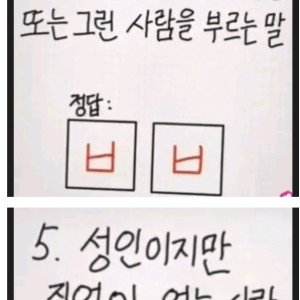 또는 그런 사람을 부르는 말
정답:
ㅂ ㅂ
5. 성인이지만